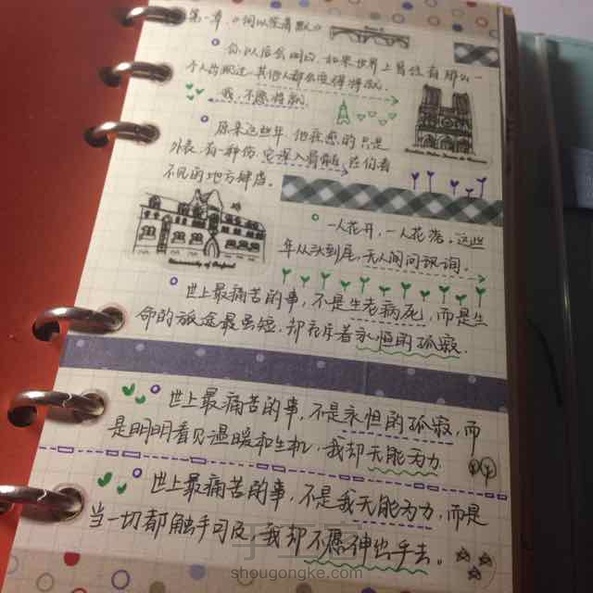 第一章、《何以笙箫默》
你以后会明白,如果世界上曾经有那么一
个人出现过,其他人都会变得将就。
我,不愿将就。
原来这些年,他在意的只是
外表,有一种伤,它深入骨髓,在你看
不见的地方肆虐。
University of Oxford
一人花开,一人花落,这些
年从头到尾,无人问询。
世上最痛苦的事,不是生老病死,而是生
命的旅途虽短,却充斥着永恒的孤寂.
世上最痛苦的事,不是永恒的孤寂,而
是明明看见温暖和生机,我却无能为力.
世上最痛苦的事,不是我无能为力,而是
当一切都触手可及,我却不愿伸出手去。
手工客
shougongke.com